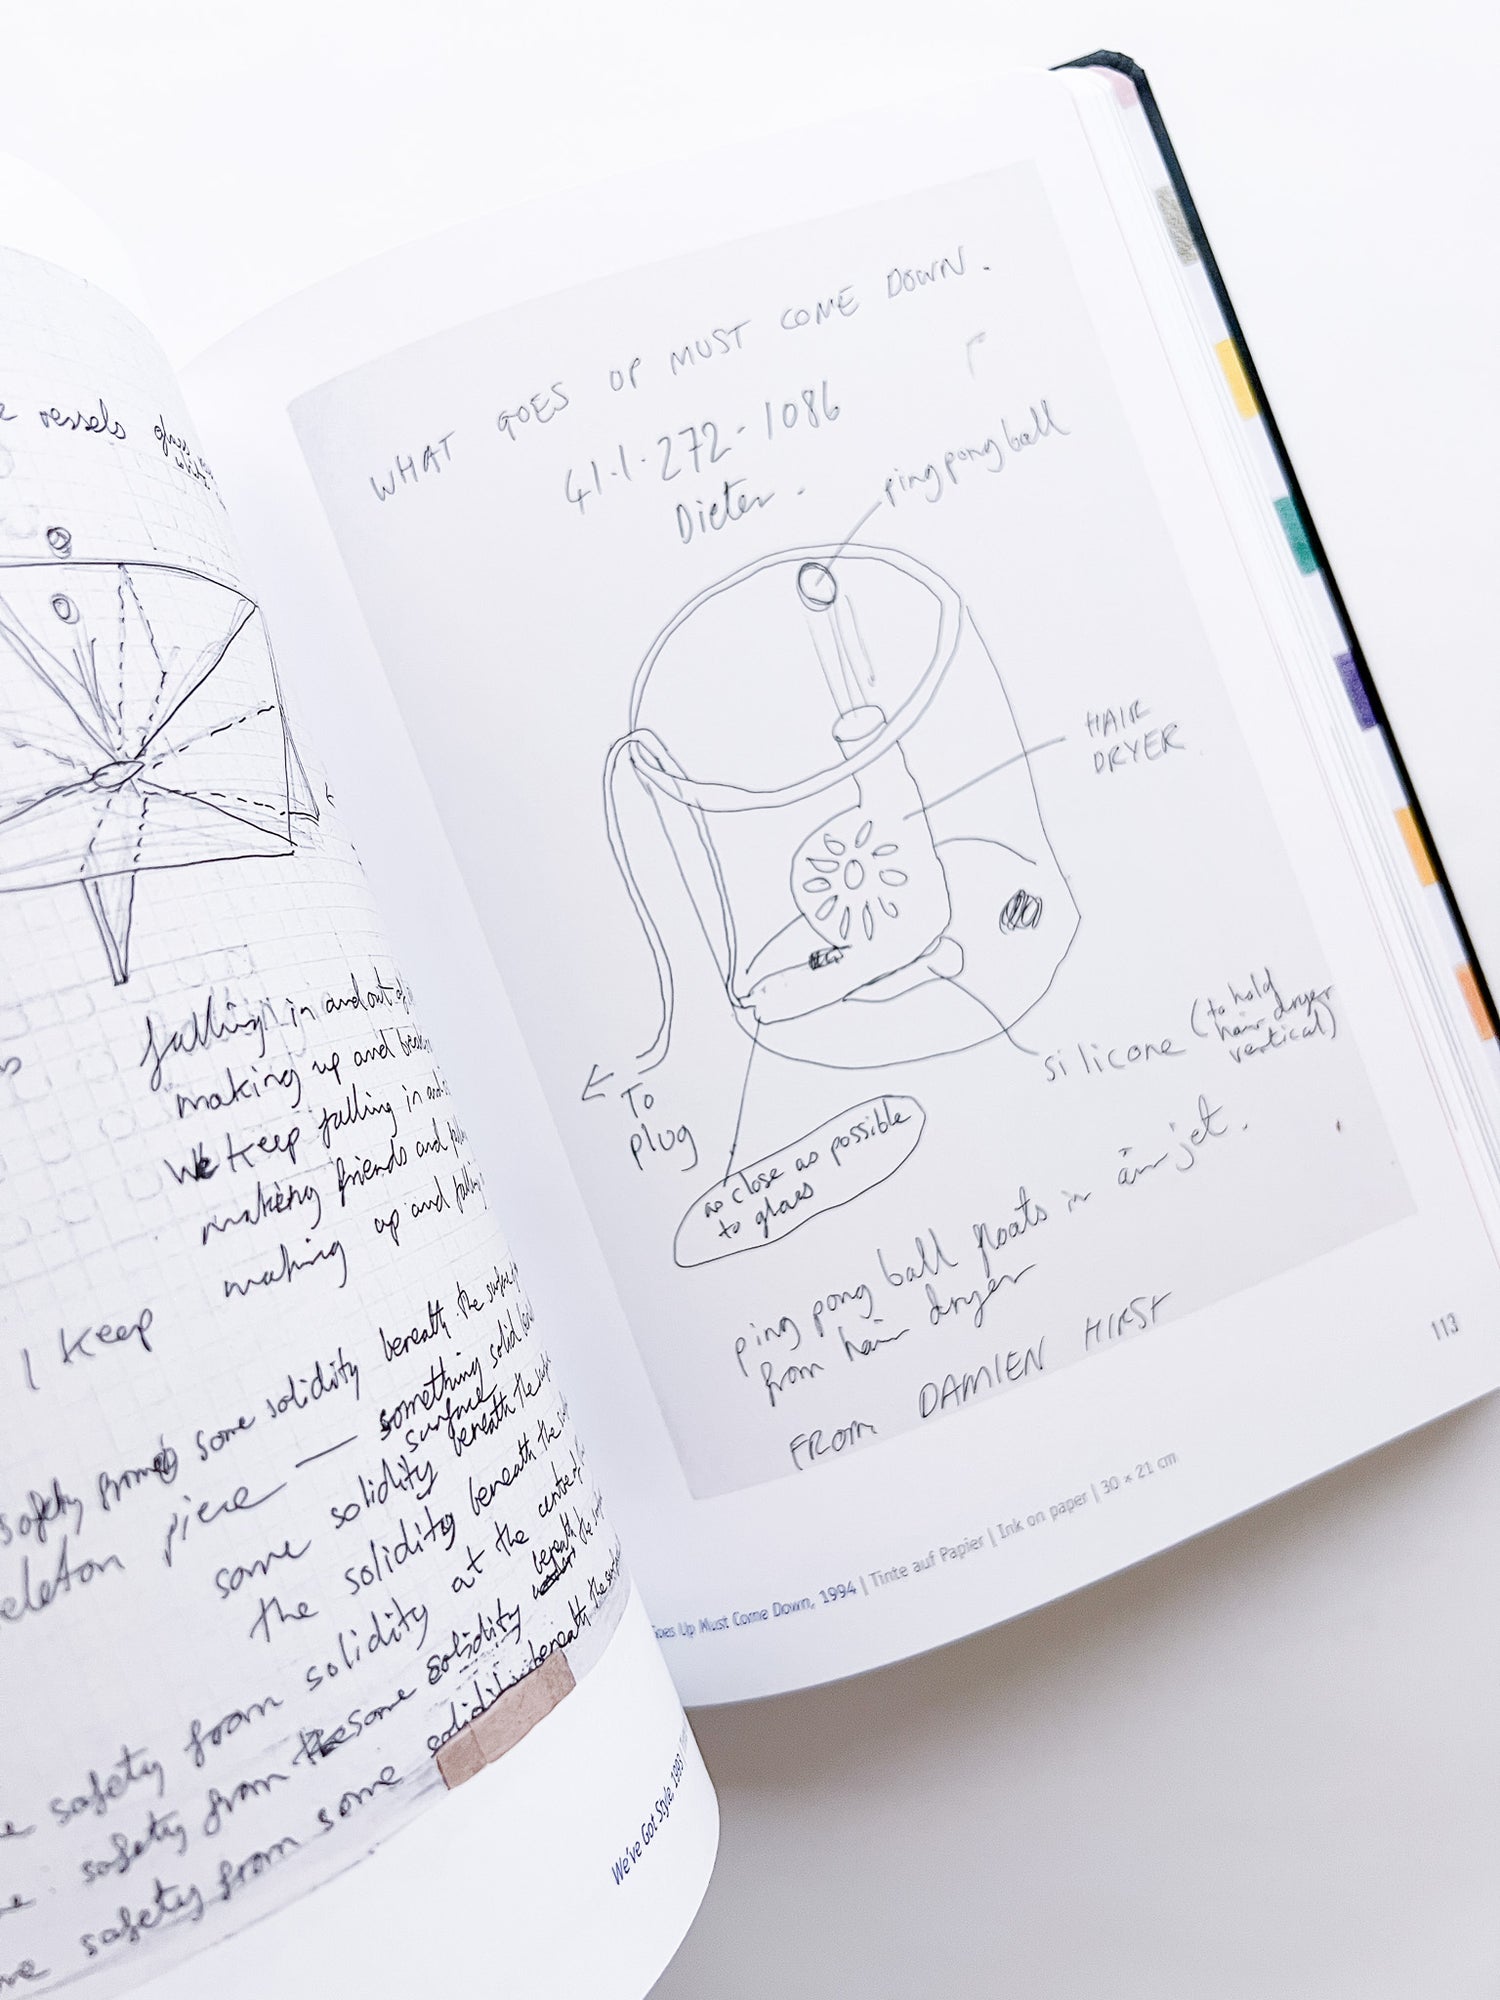 vessels
falling in and out of
making up and
We keep falling in and
making friends and
making up and
I keep
safety from some solidity beneath the surface
piece — something solid
surface
some solidity beneath the
the solidity beneath the
solidity at the centre of
beneath
safety from some solidity the
safety from some solidity beneath the surface
safety from some
We've Got Style, 1993
WHAT GOES UP MUST COME DOWN.
41·1·272-1086
Dieter.
ping pong ball
HAIR
DRYER
silicone (to hold
hair dryer
vertical)
← To
plug
as close as possible
to glass
ping pong ball floats in air jet.
from hair dryer
FROM DAMIEN HIRST
113
Goes Up Must Come Down, 1994 | Tinte auf Papier | Ink on paper | 30 × 21 cm